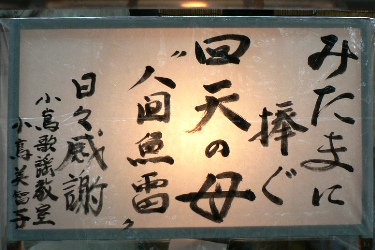 みたまに
捧ぐ
回天の母
〝人間魚雷〟
日々感謝
小高歌謡教室
小高美智子